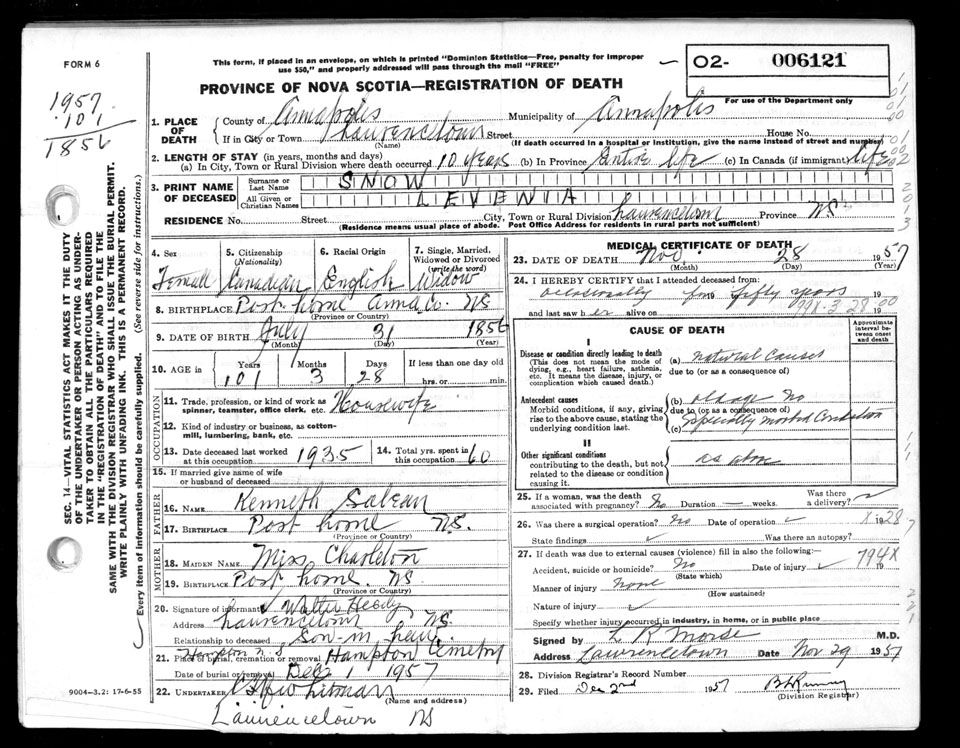 FORM 6
This form, if placed in an envelope, on which is printed "Dominion Statistics—Free, penalty for improper
use $50," and properly addressed will pass through the mail "FREE"
O2- 006121
For use of the Department only
PROVINCE OF NOVA SCOTIA—REGISTRATION OF DEATH
1957
101
1856
1. PLACE OF DEATH
County of Annapolis Municipality of Annapolis
If in City or Town Lawrencetown Street House No.
(Name) (If death occurred in a hospital or institution, give the name instead of street and number)
2. LENGTH OF STAY (in years, months and days)
(a) In City, Town or Rural Division where death occurred 10 years (b) In Province Entire life (c) In Canada (if immigrant) life
3. PRINT NAME OF DECEASED
Surname or Last Name SNOW
All Given or Christian Names LEVENIA
RESIDENCE No. Street City, Town or Rural Division Lawrencetown Province NS
(Residence means usual place of abode. Post Office Address for residents in rural parts not sufficient)
SEC. 14—VITAL STATISTICS ACT MAKES IT THE DUTY
OF THE UNDERTAKER OR PERSON ACTING AS UNDER-
TAKER TO OBTAIN ALL THE PARTICULARS REQUIRED
IN THE "REGISTRATION OF DEATH" AND TO FILE THE
SAME WITH THE DIVISION REGISTRAR WHO SHALL ISSUE THE BURIAL PERMIT.
WRITE PLAINLY WITH UNFADING INK. THIS IS A PERMANENT RECORD.
Every item of information should be carefully supplied. (See reverse side for instructions.)
4. Sex 5. Citizenship (Nationality) 6. Racial Origin 7. Single, Married, Widowed or Divorced (write the word)
Female Canadian English Widow
8. BIRTHPLACE Port home Anna Co. NS
(Province or Country)
9. DATE OF BIRTH July 31 1856
(Month) (Day) (Year)
10. AGE in Years Months Days If less than one day old
101 3 28 hrs. or min.
OCCUPATION
11. Trade, profession, or kind of work as
spinner, teamster, office clerk, etc. Housewife
12. Kind of industry or business, as cotton-
mill, lumbering, bank, etc.
13. Date deceased last worked at this occupation 1935 14. Total yrs. spent in this occupation 60
15. If married give name of wife
or husband of deceased
FATHER
16. Name Kenneth Sabean
17. Birthplace Port home NS.
(Province or Country)
MOTHER
18. Maiden Name Miss Charleton
19. Birthplace Port home. NS
(Province or Country)
20. Signature of informant Walter
Address Lawrencetown NS
Relationship to deceased Son-in law.
Hampton N.S
21. Place of burial, cremation or removal Hampton Cemetry
Date of burial or removal Dec 1 1957
22. UNDERTAKER
(Name and address)
Lawrencetown NS
9004-3.2: 17-6-55
MEDICAL CERTIFICATE OF DEATH
23. DATE OF DEATH Nov 28 1957
(Month) (Day) (Year)
24. I HEREBY CERTIFY that I attended deceased from:
occasionally for fifty years 19
and last saw her alive on 19
CAUSE OF DEATH
Approximate interval between onset and death
I
Disease or condition directly leading to death
(This does not mean the mode of
dying, e.g., heart failure, asthenia,
etc. It means the disease, injury, or
complication which caused death.)
(a) natural Causes
due to (or as a consequence of)
Antecedent causes
Morbid conditions, if any, giving
rise to the above cause, stating the
underlying condition last.
(b) old age no
due to (or as a consequence of)
(c) especially morbid Condition
II
Other significant conditions
contributing to the death, but not
related to the disease or condition
causing it.
as above
25. If a woman, was the death associated with pregnancy? No Duration — weeks. Was there a delivery?
26. Was there a surgical operation? No Date of operation 19
State findings Was there an autopsy?
27. If death was due to external causes (violence) fill in also the following:—
Accident, suicide or homicide? No Date of injury 19
(State which)
794X
Manner of injury None
(How sustained)
Nature of injury
Specify whether injury occurred in industry, in home, or in public place
Signed by L R Morse M.D.
Address Lawrencetown Date Nov 29 1957
28. Division Registrar's Record Number
29. Filed Dec 2nd 1957
(Division Registrar)